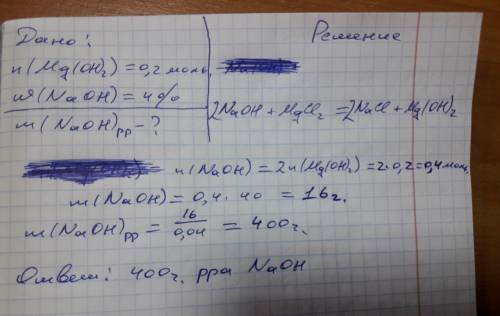 Дано:
Решение
n(Mg(OH)₂) = 0,2 моль
ω(NaOH) = 4%
m(NaOH)рр - ?
2NaOH + MgCl₂ = 2NaCl + Mg(OH)₂
n(NaOH) = 2n(Mg(OH)₂) = 2·0,2 = 0,4 моль
m(NaOH) = 0,4 · 40 = 16 г.
m(NaOH)рр = 16/0,04 = 400 г.
Ответ: 400 г. рра NaOH